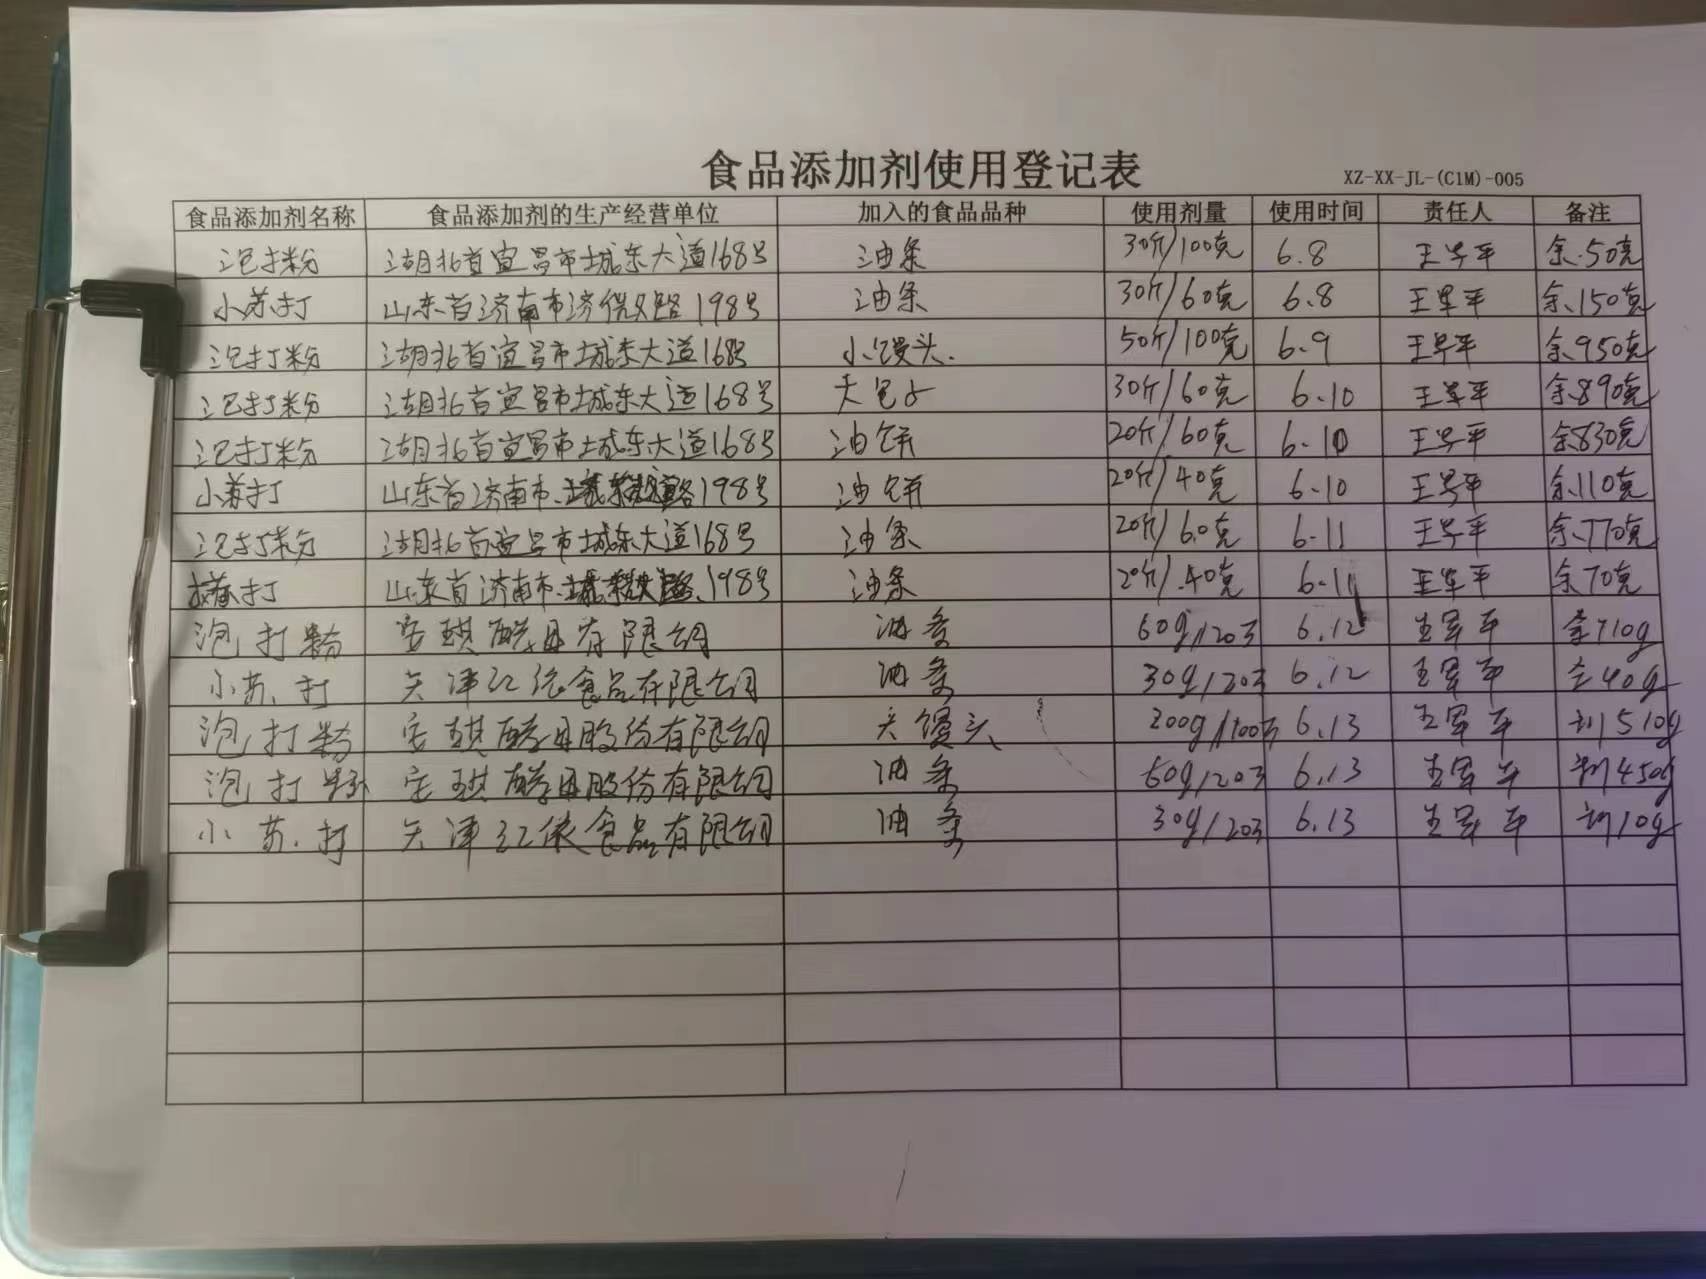 食品添加剂使用登记表
XZ-XX-JL-(C1M)-005
食品添加剂名称 食品添加剂的生产经营单位 加入的食品品种 使用剂量 使用时间 责任人 备注
泡打粉 湖北省宜昌市城东大道168号 油条 30斤/100克 6.8 王军平 余.50克
小苏打 山东省济南市济 路198号 油条 30斤/60克 6.8 王军平 余.150克
泡打粉 湖北省宜昌市城东大道168号 小馒头. 50斤/100克 6.9 王军平 余950克
泡打粉 湖北省宜昌市城东大道168号 大包子 30斤/60克 6.10 王军平 余890克
泡打粉 湖北省宜昌市城东大道168号 油饼 20斤/60克 6.10 王军平 余830克
小苏打 山东省济南市 198号 油饼 20斤/40克 6.10 王军平 余.110克
泡打粉 湖北省宜昌市城东大道168号 油条 20斤/60克 6.11 王军平 余.770克
苏打 山东省济南市 198号 油条 20斤/.40克 6.11 王军平 余70克
泡打粉 安琪酵母有限公司 油条 60g/20斤 6.12 王军平 余710g
小苏.打 天津红 食品有限公司 油条 30g/20斤 6.12 王军平 余40g
泡打粉 安琪酵母股份有限公司 大馒头 200g/100斤 6.13 王军平 剩510g
泡打粉 安琪酵母股份有限公司 油条 60g/20斤 6.13 王军平 剩450g
小苏.打 天津红 食品有限公司 油条 30g/20斤 6.13 王军平 剩10g